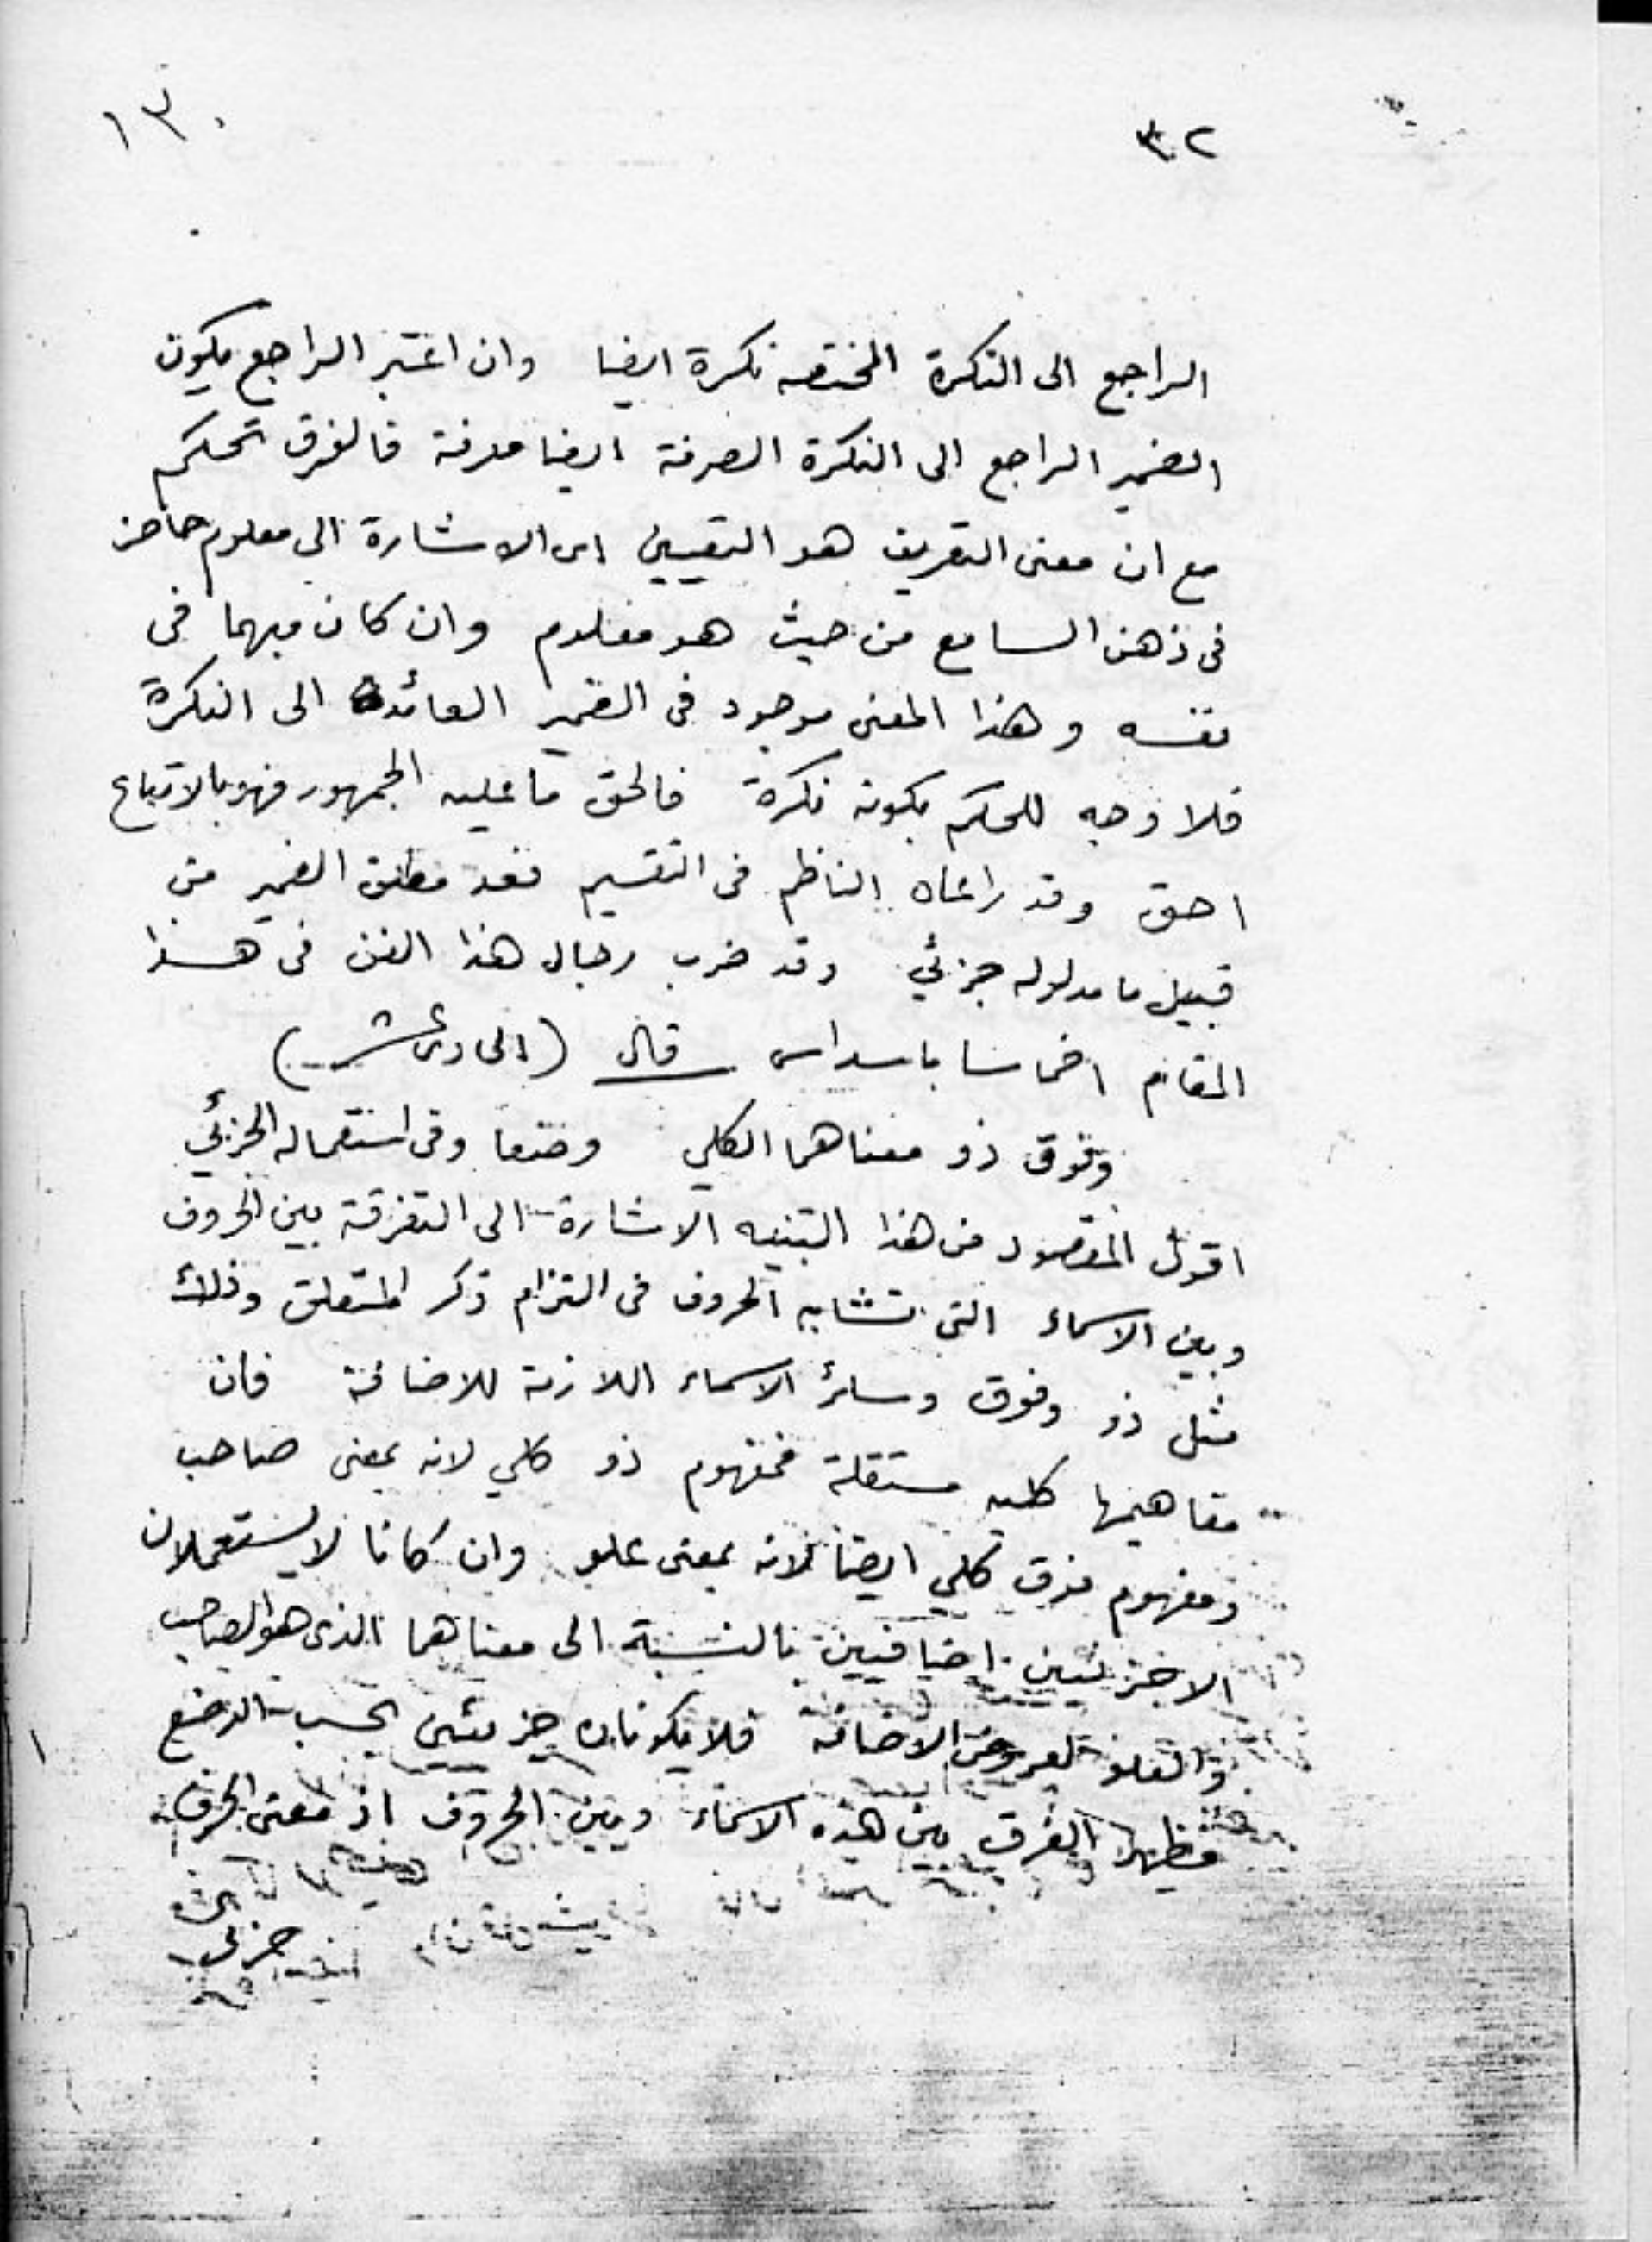 ١٣٠
٣٢
الراجع الى النكرة المختصه نكرة ايضا وان اعتبر الراجع يكون
الضمير الراجع الى النكرة الصرفة ايضا معرفة فالفرق تحكم
مع ان معنى التعريف هو التعيين اى الاشارة الى معلوم حاضر
فى ذهن السامع من حيث هو معلوم وان كان مبهما فى
نفسه وهذا المعنى موجود فى الضمير العائد الى النكرة
فلا وجه للحكم بكونه نكرة فالحق ما عليه الجمهور فهو بالاتباع
احق وقد راعاه الناظم فى التقسيم فعد مطلق الضمير من
قبيل ما مدلوله جزئي وقد ضرب رجال هذا الفن فى هذا
المقام اخماسا باسداس قال (الحادى عشر)
وفوق ذو معناهما الكلي وضعا وفى استعماله الجزئي
اقول المقصود من هذا التنبيه الاشارة الى التفرقة بين الحروف
وبين الاسماء التى تشابه الحروف فى التزام ذكر المتعلق وذلك
مثل ذو وفوق وسائر الاسماء اللازمة للاضافة فان
مفاهيمها كليه مستقلة فمفهوم ذو كلي لانه بمعنى صاحب
ومفهوم فوق كلي ايضا لانه بمعنى علو وان كانا لا يستعملان
الا جزئيين اضافيين بالنسبة الى معناهما الذى هو الصاحب
والعلو لعروض الاضافة فلا يكونان جزئيين بحسب الوضع
فظهر الفرق بين هذه الاسماء وبين الحروف اذ معنى الحرف
جزئي